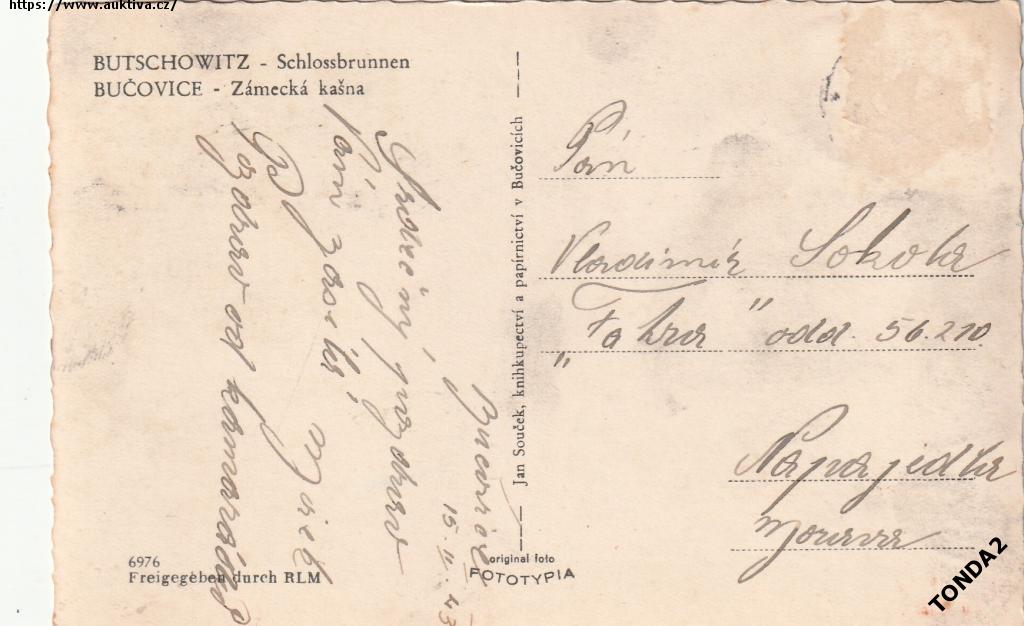 https://www.auktiva.cz/
BUTSCHOWITZ - Schlossbrunnen
BUČOVICE - Zámecká kašna
Bučovice
15. II. 43
Srdečný pozdrav
Vám zasílá
Pozdrav od kamarádů
Jan Souček, knihkupectví a papírnictví v Bučovicích
Pán
Vladimír Sokola
„Fatra" odd. 56.210
Napajedla
Morava
6976
Freigegeben durch RLM
original foto
FOTOTYPIA
TONDA2